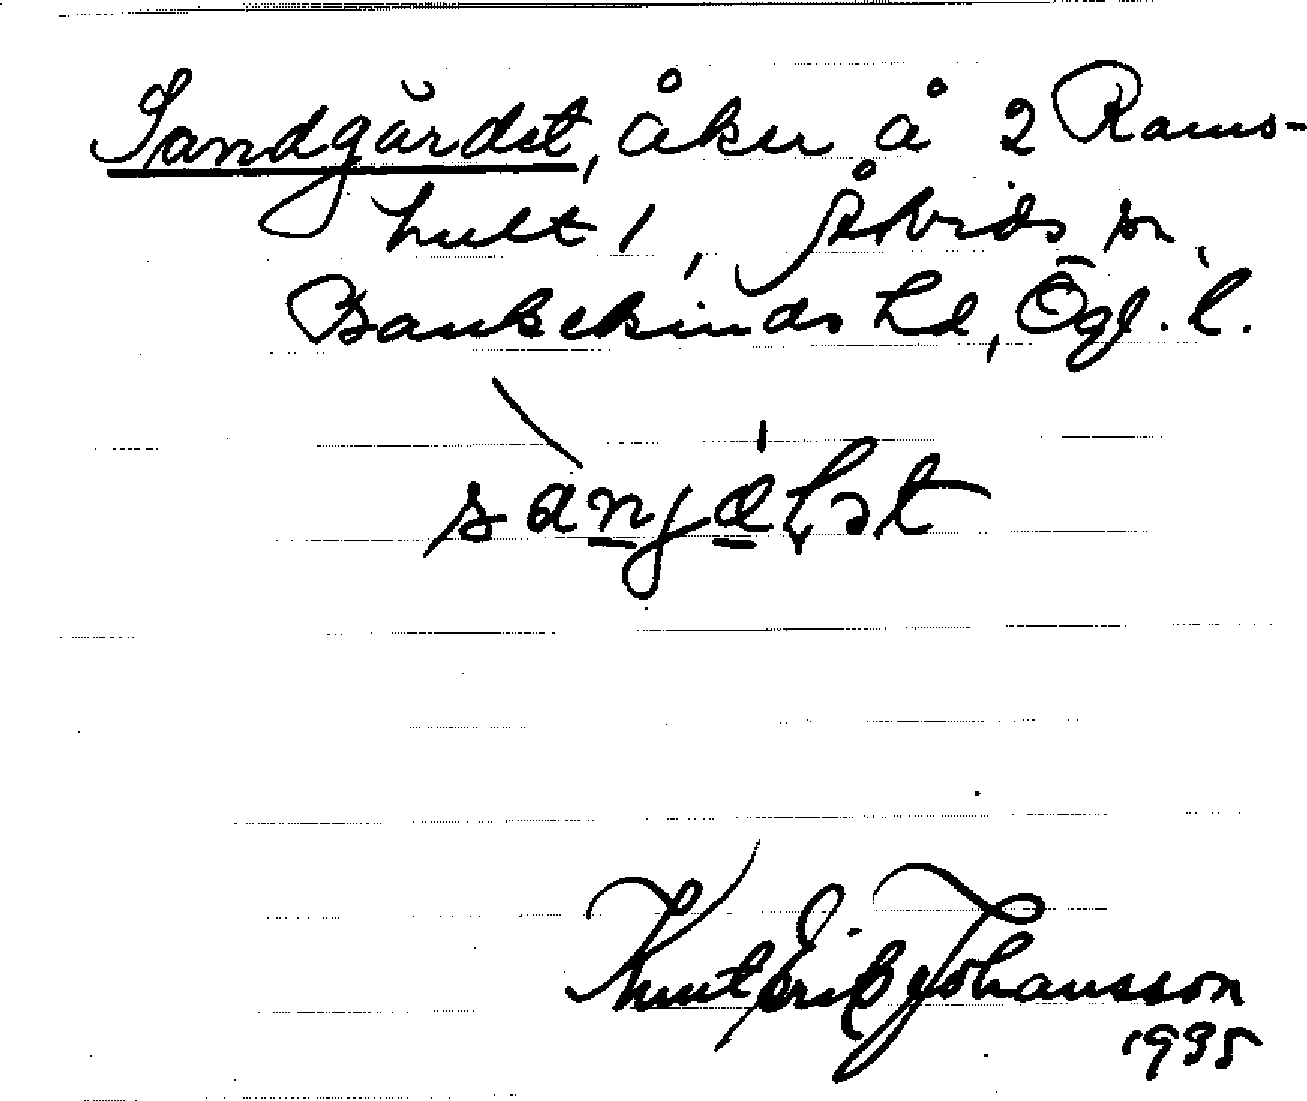 Sandgärdet, åker å 2 Rams-
hult 1, Åtvids sn,
Bankekinds hd, Ögl. l.
Knut Erik Johansson
1935